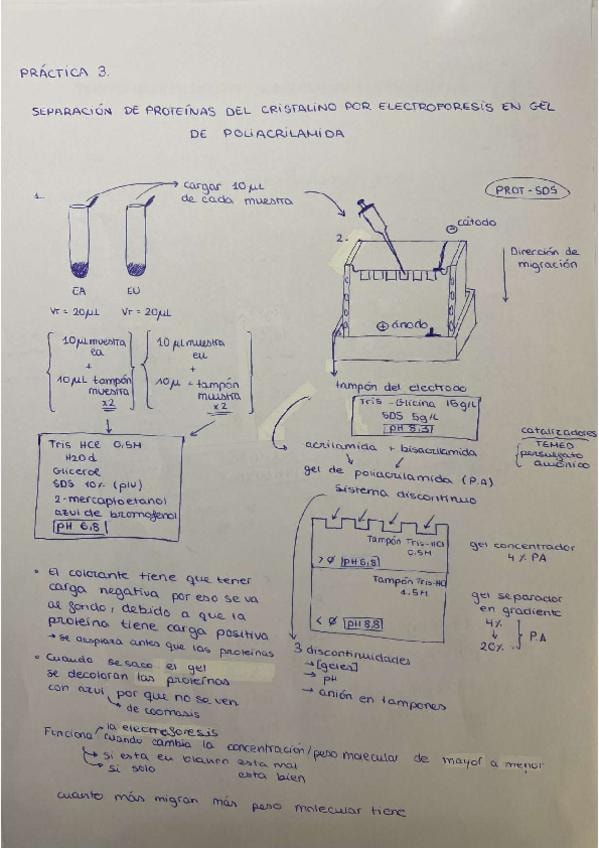 PRÁCTICA 3.
SEPARACIÓN DE PROTEÍNAS DEL CRISTALINO POR ELECTROFORESIS EN GEL
DE POLIACRILAMIDA
PROT-SDS
1.
cargar 10 µL
de cada muestra
EA
EU
VT = 20µL
VT = 20µL
10 µl muestra
ea
+
10 µL tampón
muestra
x2
10 µl muestra
eu
+
10 µL tampón
muestra
x2
Tris HCl 0,5M
H2Od
Glicerol
SDS 10% (p/v)
2-mercaptoetanol
azul de bromofenol
pH 6,8
2.
⊖ cátodo
Dirección de
migración
⊕ ánodo
tampón del electrodo
Tris-Glicina 15g/L
SDS 5g/L
pH 8,3
acrilamida + bisacrilamida
catalizadores
TEMED
persulfato
amónico
gel de poliacrilamida (P.A)
sistema discontinuo
Tampón Tris-HCl
0,5M
> Ø pH 6,8
gel concentrador
4% PA
Tampón Tris-HCl
1,5M
< Ø pH 8,8
gel separador
en gradiente
4%
↓
20%
P.A
3 discontinuidades
→ [geles]
→ pH
→ anión en tampones
• El colorante tiene que tener
carga negativa por eso se va
al fondo, debido a que la
proteína tiene carga positiva
→ se acopiara antes que las proteínas
• Cuando se saca el gel
se decoloran las proteínas
con azul, por que no se ven
→ de coomasis
Funciona la electroforesis
cuando cambia la concentración/peso molecular de mayor a menor
→ si esta en blanco esta mal
→ si solo esta bien
cuanto más migran más peso molecular tiene